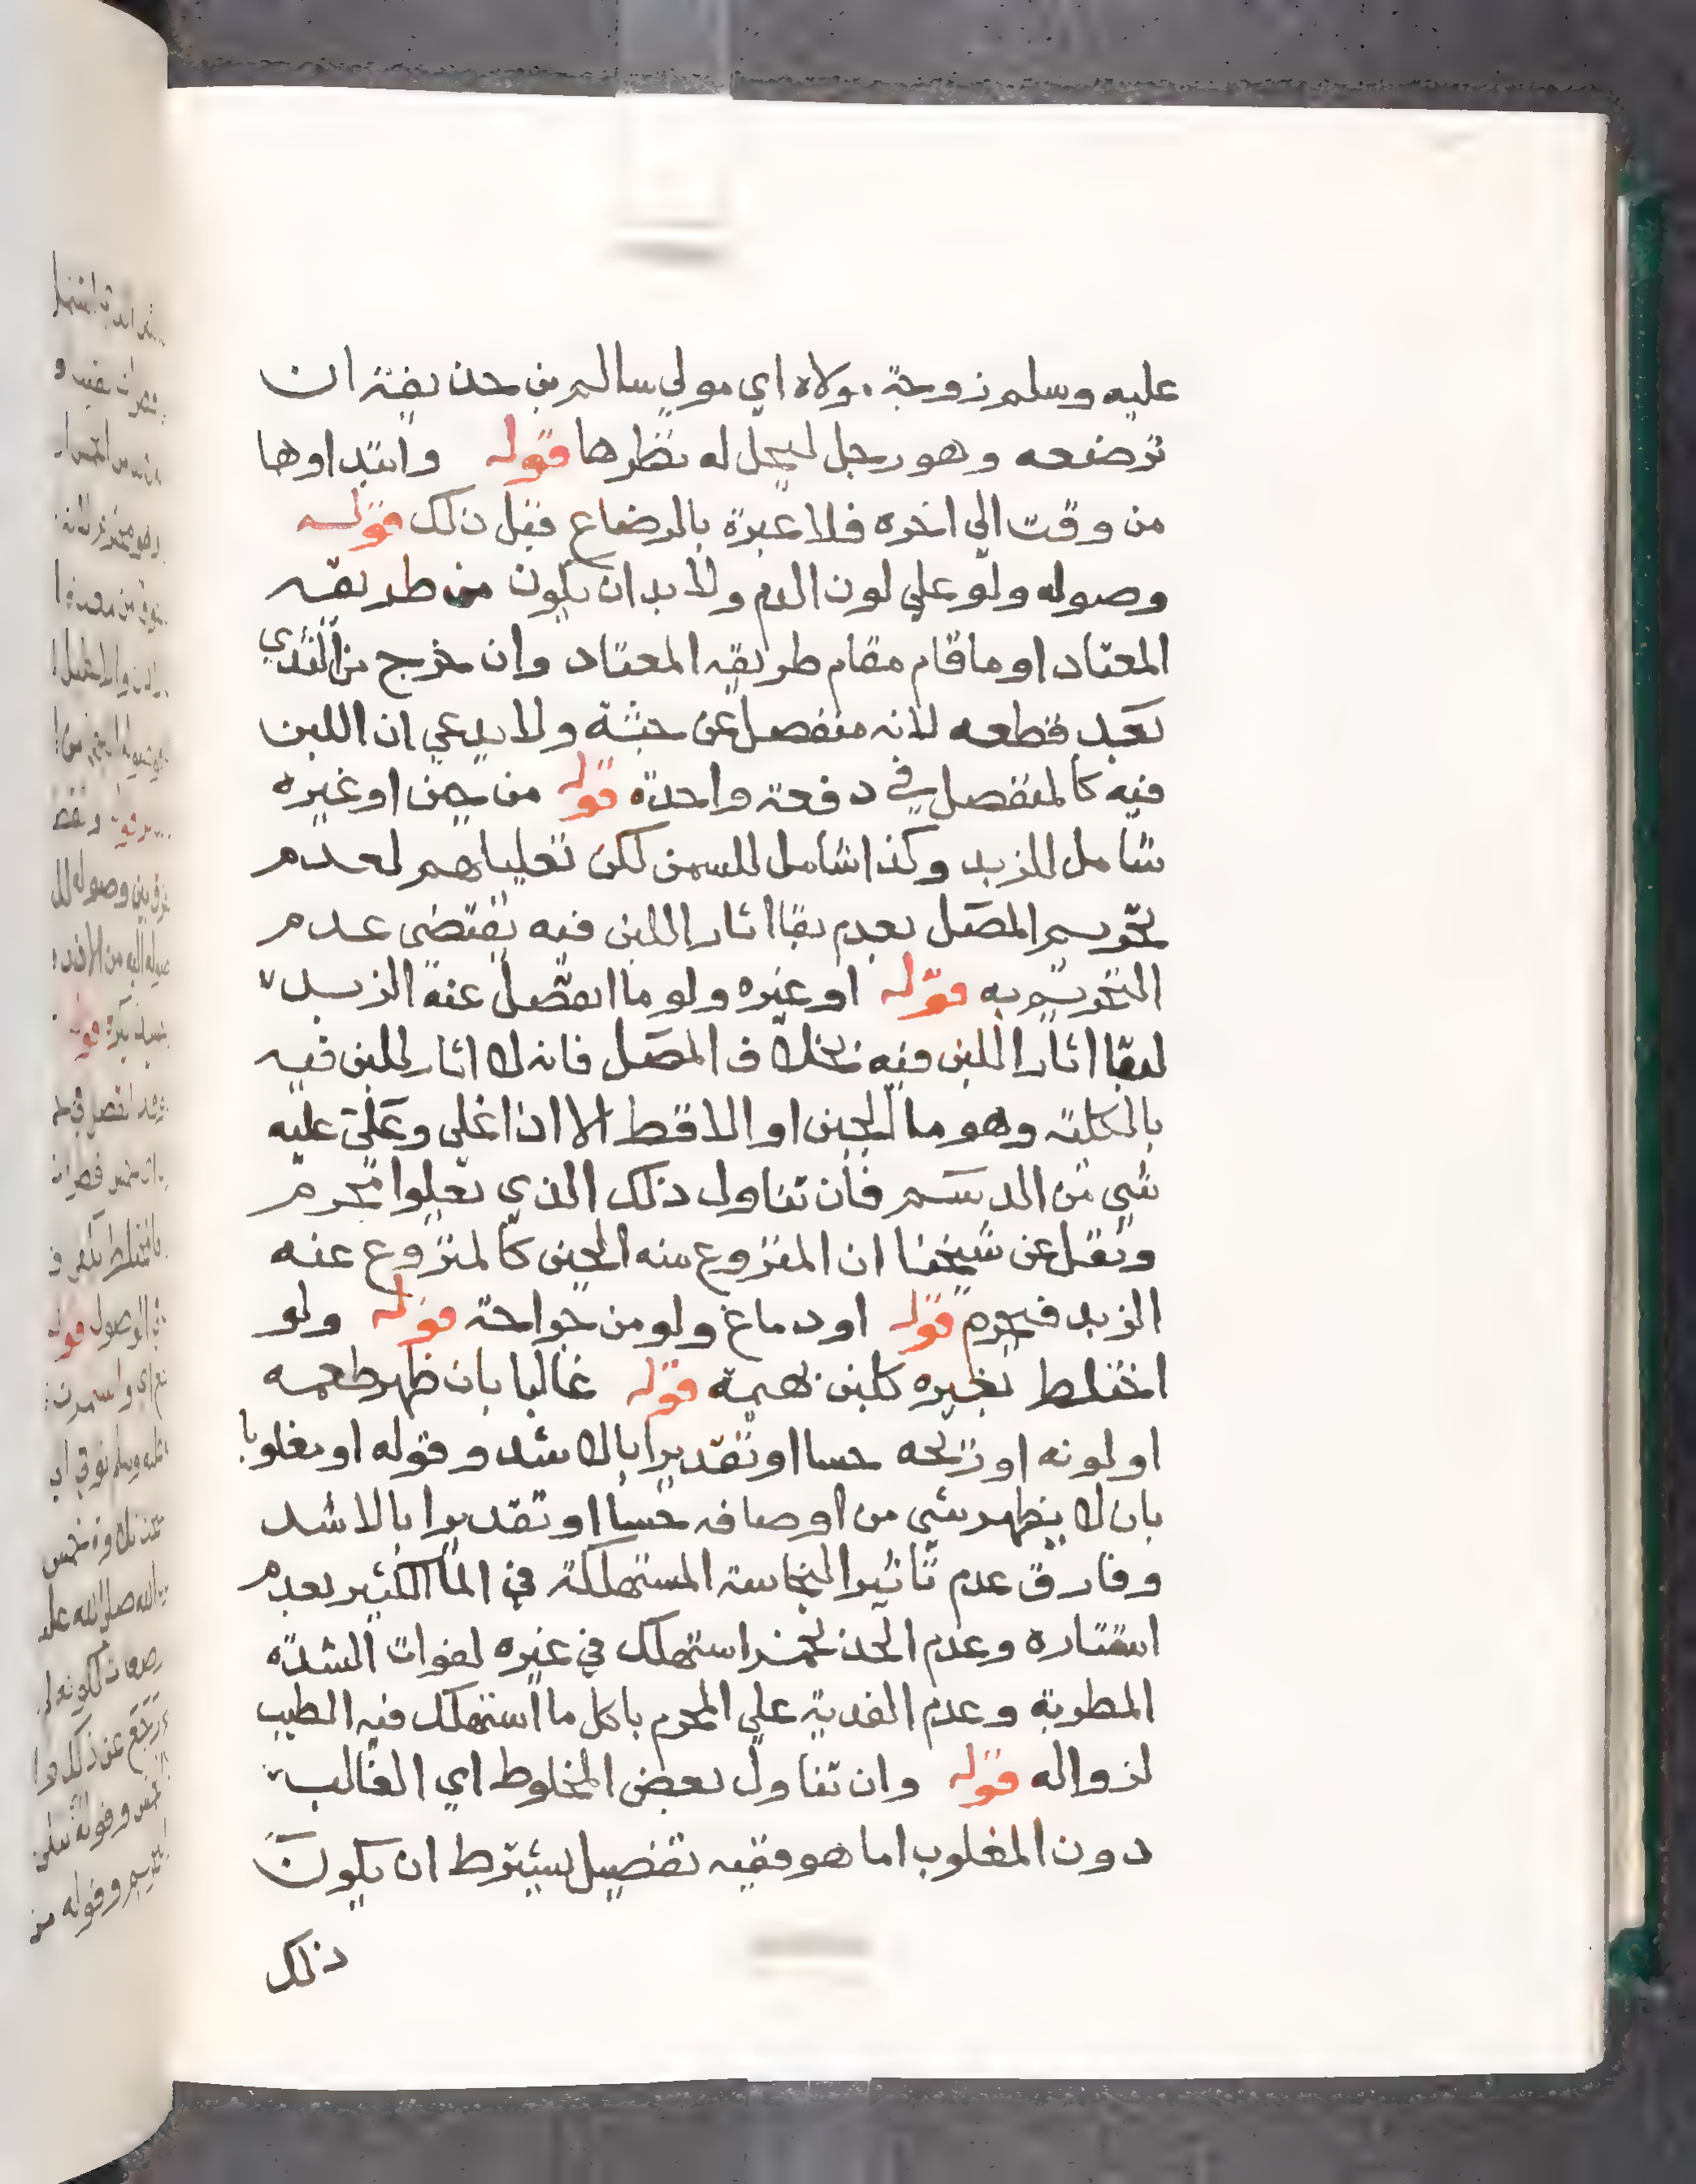 عليه وسلم زوجة مولاه اي مولي سالم بن حذيفة ان
ترضعه وهو رجل ليحل له نظرها قوله وابتداوها
من وقت الي اخره فلا عبرة بالرضاع قبل ذلك قوله
وصوله ولو علي لون الدم ولا بد ان يكون من طريقه
المعتاد او ما قام مقام طريقه المعتاد وان خرج من الثدي
بعد قطعه لانه منفصل عن جثة ولا يدعي ان اللبن
فيه كالمنفصل في دفعة واحدة قوله من جبن او غيره
شامل للزبد وكذا شامل للسمن لكن تعليلهم لعدم
تحريم المصل بعدم بقا اثار اللبن فيه يقتضي عدم
التحريم به قوله او غيره ولو ما انفصل عنه الزبد
لبقا اثار اللبن فيه بخلاف المصل فانه لا اثار للبن فيه
بالكلية وهو ما الجبن او الاقط الا اذا غلي وعلي عليه
شي من الدسم فان تناول ذلك الذي يعلوا محرم
ونقل عن شيخنا ان المنزوع منه الجبن كالمنزوع عنه
الزبد فيحرم قوله او دماغ ولو من جراحة قوله ولو
اختلط بغيره كلبن بهيمة قوله غالبا بان ظهر طعمه
او لونه او ريحه حسا او تقديرا بالاشد وقوله او مغلوبا
بان لا يظهر شي من اوصافه حسا او تقديرا بالاشد
وفارق عدم تاثير النجاسة المستهلكة في الما الكثير بعدم
استتاره وعدم الحد بخمر استهلك في غيره لفوات الشدة
المطربة وعدم الفدية علي المحرم باكل ما استهلك فيه الطيب
لزواله قوله وان تناول بعض المخلوط اي الغالب
دون المغلوب اما هو ففيه تفصيل يشترط ان يكون
ذلك